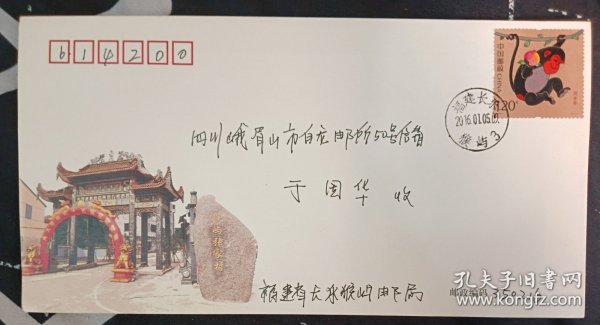 614200
中国邮政 CHINA
1.20元
福建长乐
2016.01.05.
猴屿 3
四川峨眉山市白龙邮所50号信箱
于国华 收
福建省长乐猴屿邮局
邮政编码
孔夫子旧书网
www.kongfz.com